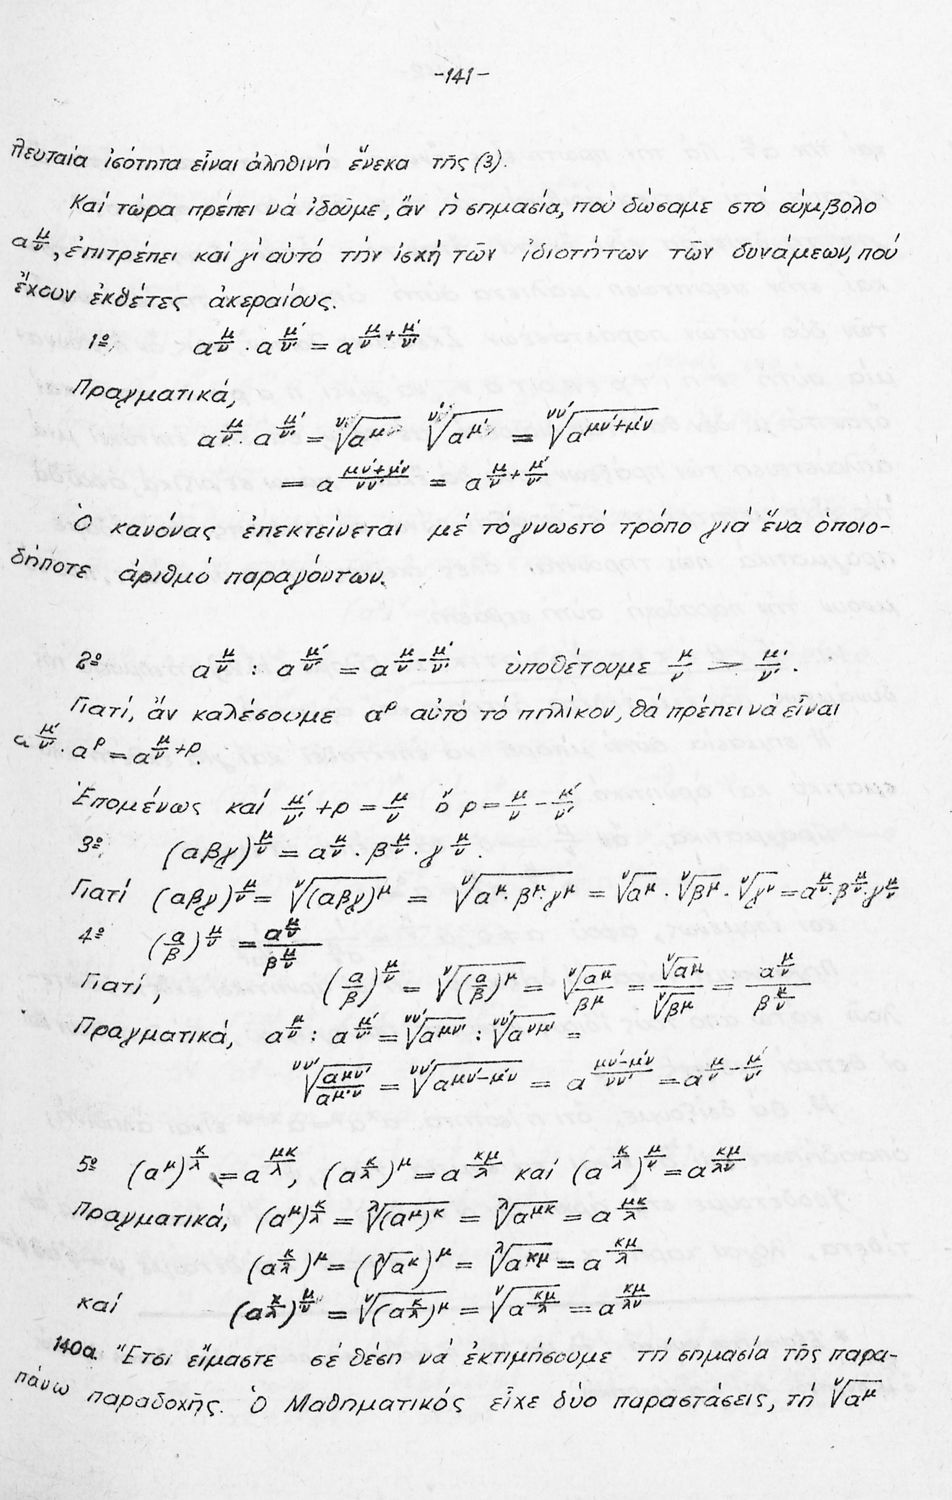 -141-
πλευταία ἰσότητα εἶναι ἀληθινή ἕνεκα τῆς (3).
Καί τώρα πρέπει νά ἰδοῦμε, ἄν ἡ σημασία, πού δώσαμε στό σύμβολο
α^{μ/ν}, ἐπιτρέπει καί γι' αὐτό τήν ἰσχή τῶν ἰδιοτήτων τῶν δυνάμεων, πού
ἔχουν ἐκθέτες ἀκεραίους.
1º. α^{μ/ν} · α^{μ'/ν'} = α^{μ/ν + μ'/ν'}
Πραγματικά,
α^{μ/ν} · α^{μ'/ν'} = ᵛ√(α^μ) ᵛ'√(α^{μ'}) = ᵛᵛ'√(α^{μν'+μ'ν})
= α^{(μν'+μ'ν)/(νν')} = α^{μ/ν + μ'/ν'}
Ὁ κανόνας ἐπεκτείνεται μέ τό γνωστό τρόπο γιά ἕνα ὁποιο-
δήποτε ἀριθμό παραγόντων.
2º α^{μ/ν} : α^{μ'/ν'} = α^{μ/ν - μ'/ν'} ὑποθέτουμε μ/ν > μ'/ν'.
Γιατί, ἄν καλέσουμε α^ρ αὐτό τό πηλίκον, θά πρέπει νά εἶναι
α^{μ'/ν'} · α^ρ = α^{μ/ν +ρ}.
Ἑπομένως καί μ'/ν' + ρ = μ/ν ὅ ρ = μ/ν - μ'/ν'
3º. (αβγ)^{μ/ν} = α^{μ/ν} · β^{μ/ν} · γ^{μ/ν}.
Γιατί (αβγ)^{μ/ν} = ᵛ√((αβγ)^μ) = ᵛ√(α^μ · β^μ · γ^μ) = ᵛ√(α^μ) · ᵛ√(β^μ) · ᵛ√(γ^ν) = α^{μ/ν} · β^{μ/ν} · γ^{μ/ν}
4º (α/β)^{μ/ν} = α^{μ/ν} / β^{μ/ν}
Γιατί, (α/β)^{μ/ν} = ᵛ√((α/β)^μ) = ᵛ√(α^μ/β^μ) = ᵛ√(α^μ) / ᵛ√(β^μ) = α^{μ/ν} / β^{μ/ν}
Πραγματικά, α^{μ/ν} : α^{μ'/ν'} = ᵛᵛ'√(α^{μν'}) : ᵛᵛ'√(α^{νμ'}) =
ᵛᵛ'√(α^{μν'} / α^{μ'ν}) = ᵛᵛ'√(α^{μν'-μ'ν}) = α^{(μν'-μ'ν)/(νν')} = α^{μ/ν - μ'/ν'}
5º (α^μ)^{κ/λ} = α^{μκ/λ}, (α^{κ/λ})^μ = α^{κμ/λ} καί (α^{κ/λ})^{μ/ν} = α^{κμ/λν}
Πραγματικά, (α^μ)^{κ/λ} = ^λ√((α^μ)^κ) = ^λ√(α^{μκ}) = α^{μκ/λ}
(α^{κ/λ})^μ = (^λ√(α^κ))^μ = ^λ√(α^{κμ}) = α^{κμ/λ}
καί (α^{κ/λ})^{μ/ν} = ᵛ√((α^{κ/λ})^μ) = ᵛ√(α^{κμ/λ}) = α^{κμ/λν}
140α. Ἔτσι εἴμαστε σέ θέση νά ἐκτιμήσουμε τή σημασία τῆς παρα-
πάνω παραδοχῆς. Ὁ Μαθηματικός εἶχε δύο παραστάσεις, τή ᵛ√(α^μ)